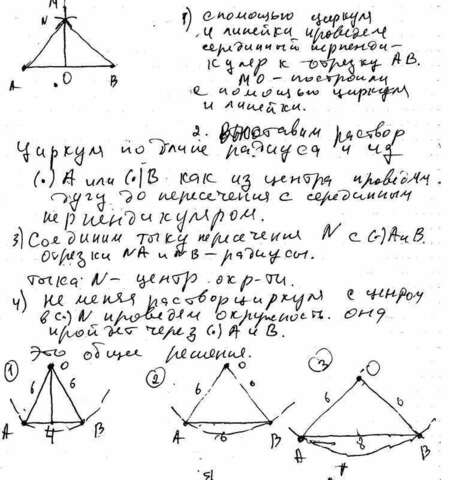 M
N
A O B
1) с помощью циркуля
и линейки проведем
серединный перпенди-
куляр к отрезку AB.
MO – построили
с помощью циркуля
и линейки.
2. выставим раствор
циркуля по длине радиуса и из
(.) A или (.) B как из центра проведём
дугу до пересечения с серединным
перпендикуляром.
3) Соединим тчку пересечения N с (.) A и B.
Отрезки NA и NB – радиусы.
тчка N – центр окр-ти.
4) не меняя раствор циркуля с центром
в (.) N проведём окружность. она
пройдет через (.) A и B.
Это общее решение.
1 O 2 O 3 O
6 6 6 6 6
A 4 B A 6 B A 8 B